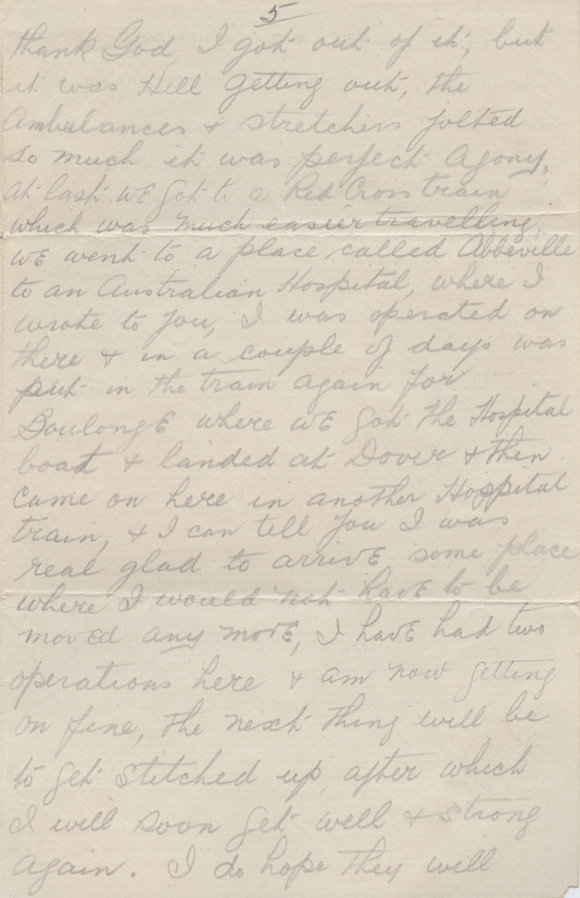 5
thank God, I got out of it, but
it was Hell getting out, the
Ambulances & stretchers jolted
so much it was perfect Agony.
at last we got to a Red Cross train
which was much easier travelling,
we went to a place called Abbeville
to an Australian Hospital, where I
wrote to you, I was operated on
there & in a couple of days was
put in the train again for
Boulonge where we got the Hospital
boat & landed at Dover & then
came on here in another Hospital
train, & I can tell you I was
real glad to arrive some place
where I would not have to be
moved any more, I have had two
operations here & am now getting
on fine, the next thing will be
to get stitched up after which
I will soon get well & strong
again. I do hope they will